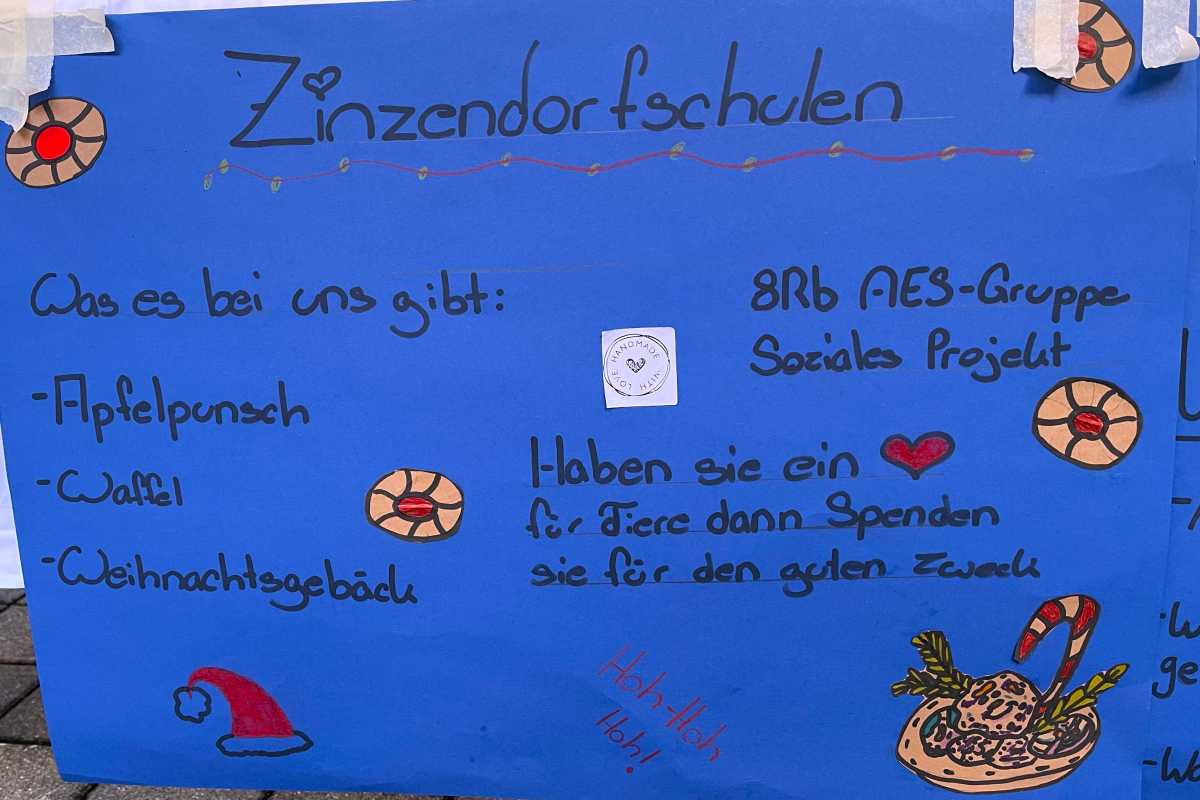 Zinzendorfschulen
Was es bei uns gibt:
-Apfelpunsch
-Waffel
-Weihnachtsgebäck
8Rb AES-Gruppe
Soziales Projekt
HANDMADE WITH LOVE
Haben sie ein
für Tiere dann Spenden
sie für den guten Zweck
Hoh-Hoh
Hoh!
ge